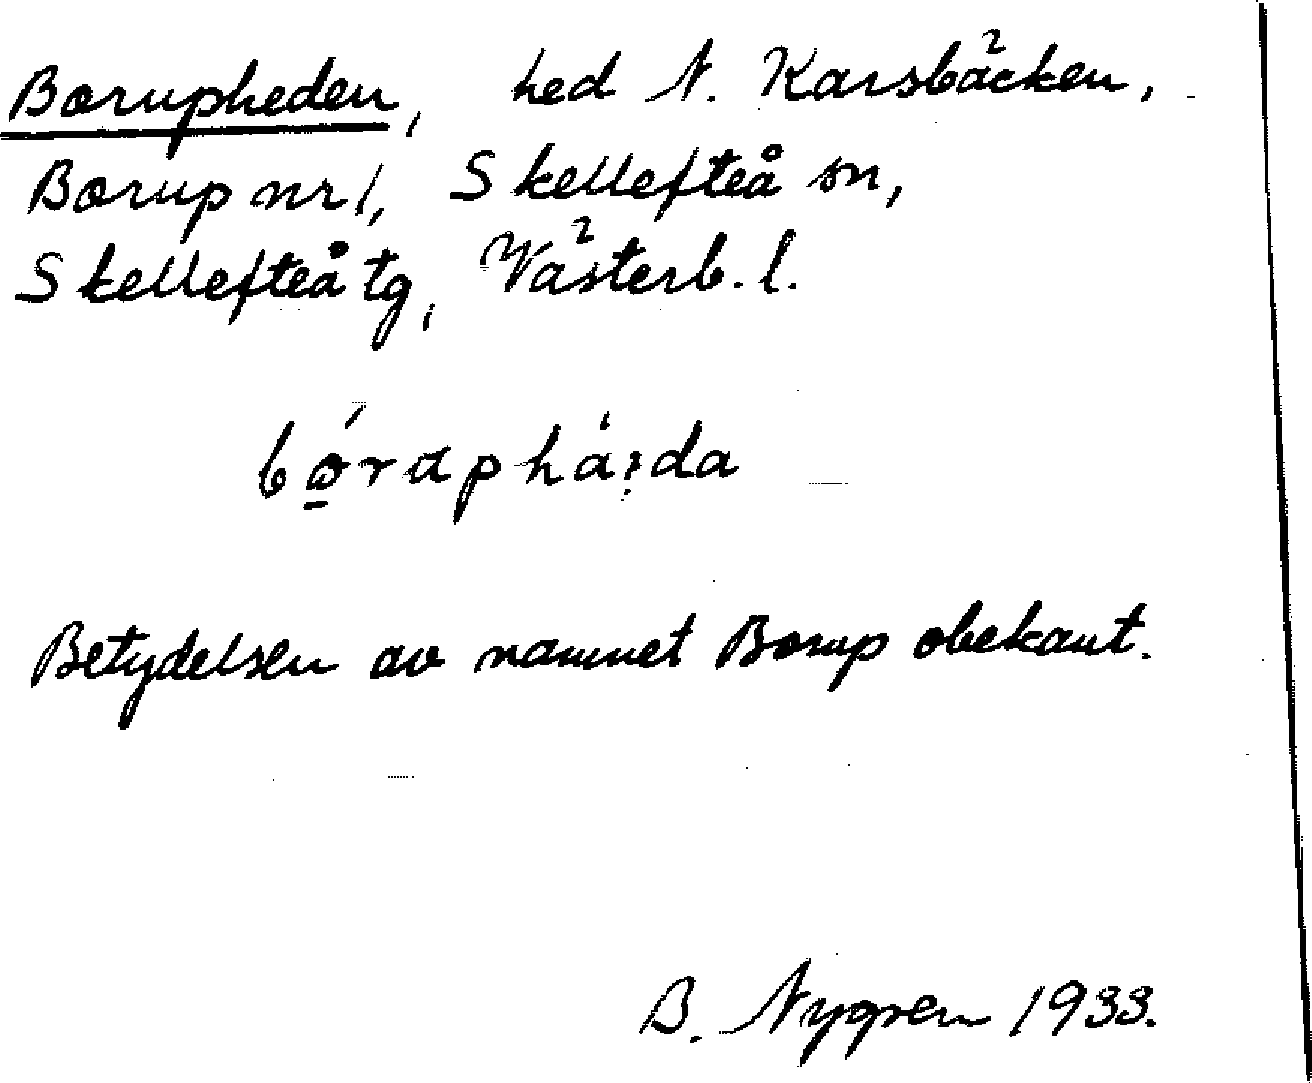 Borupheden, hed N. Karsbäcken,
Borup nr 1, Skellefteå sn,
Skellefteå tg, Västerb. l.
bórɑphá:da
Betydelsen av namnet Borup obekant.
B. Nygren 1933.